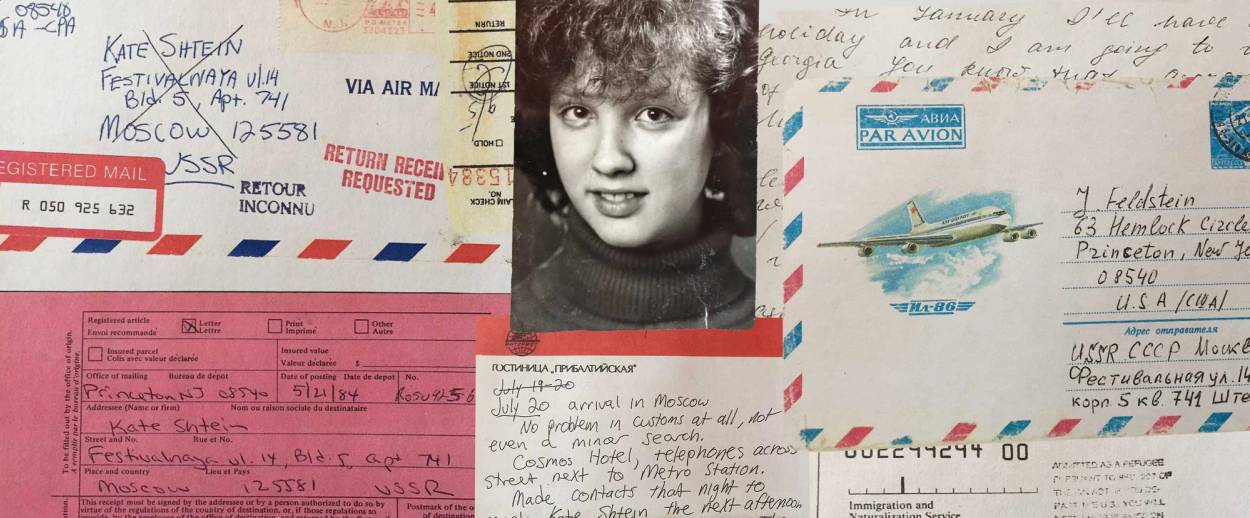 08540
KATE SHTEIN
FESTIVALNAYA ul. 14
Bld. 5, Apt. 741
MOSCOW 125581
USSR
VIA AIR
RETURN RECEI
REQUESTED
RETOUR
INCONNU
EGISTERED MAIL
R 050 925 632
N.J.
RETURN
2ND NOTICE
1ST NOTICE
HOLD
15384
CLAIM CHECK
NO.
In January I'll have
holiday and I am going to
Georgia. You know that
АВИА
PAR AVION
ИЛ-86
J. Feldstein
63 Hemlock Circle
Princeton, New Je
08540
U.S.A /США/
Адрес отправителя
USSR СССР Москв
Фестивальная ул. 14
корп. 5 кв. 741 Ште
To be filled out by the office of origin.
A remplir par le bureau d'origine.
Registered article
Envoi recommandé
Letter
Lettre
Print
Imprimé
Other
Autre
Insured parcel
Colis avec valeur déclarée
Insured value
Valeur déclarée $
Office of mailing Bureau de depot
Date of posting Date de depot
No.
Princeton NJ 08540
5/21/84
Addressee (Name or firm) Nom ou raison sociale du destinataire
Kate Shtein
Street and No. Rue et No.
Festivalnaya ul. 14, Bld. 5, apt 741
Place and country Lieu et Pays
Moscow 125581 USSR
This receipt must be signed by the addressee or by a person authorized to do so by
virtue of the regulations of the country of destination, or, if those regulations so
Postmark of the o
ГОСТИНИЦА „ПРИБАЛТИЙСКАЯ"
July 19-20
July 20 arrival in Moscow
No problem in customs at all, not
even a minor search.
Cosmos Hotel, telephones across
street next to Metro Station.
Made contacts that night to
Kate Shtein the next afternoon
002299294 00
Immigration and
Naturalization Service
ADMITTED AS A REFUGEE